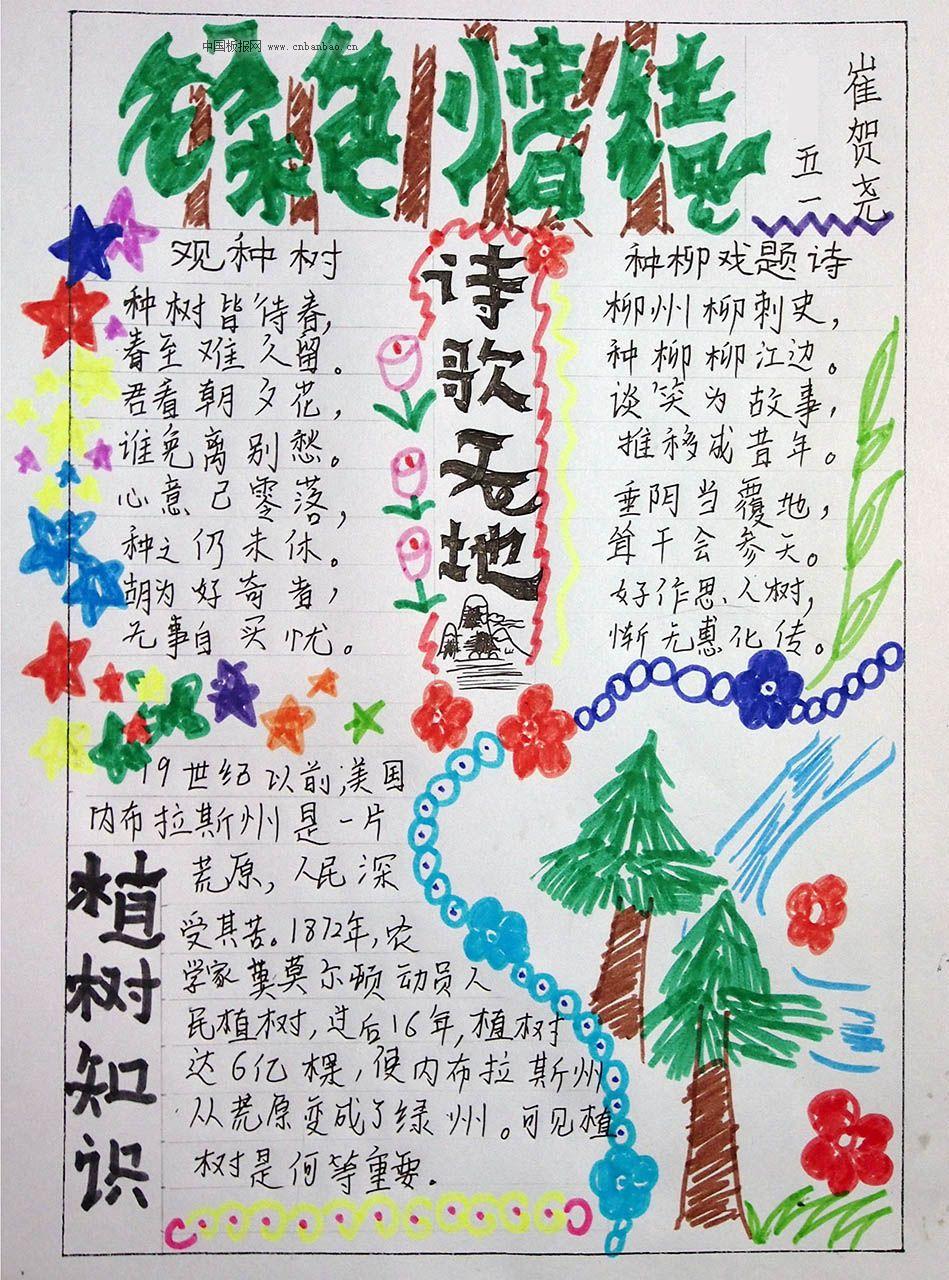 中国板报网 www.cnbanbao.cn
绿色情结
崔贺尧
五一
观种树
种树皆待春，
春至难久留。
君看朝夕花，
谁免离别愁。
心意已零落，
种之仍未休。
胡为好奇者，
无事自买忧。
诗歌天地
种柳戏题诗
柳州柳刺史，
种柳柳江边。
谈笑为故事，
推移成昔年。
垂阴当覆地，
耸干会参天。
好作思人树，
惭无惠化传。
植树知识
19世纪以前,美国
内布拉斯州是一片
荒原，人民深
受其苦。1872年,农
学家莫尔顿动员人
民植树，过后16年,植树
达6亿棵，使内布拉斯州
从荒原变成了绿州。可见植
树是何等重要.